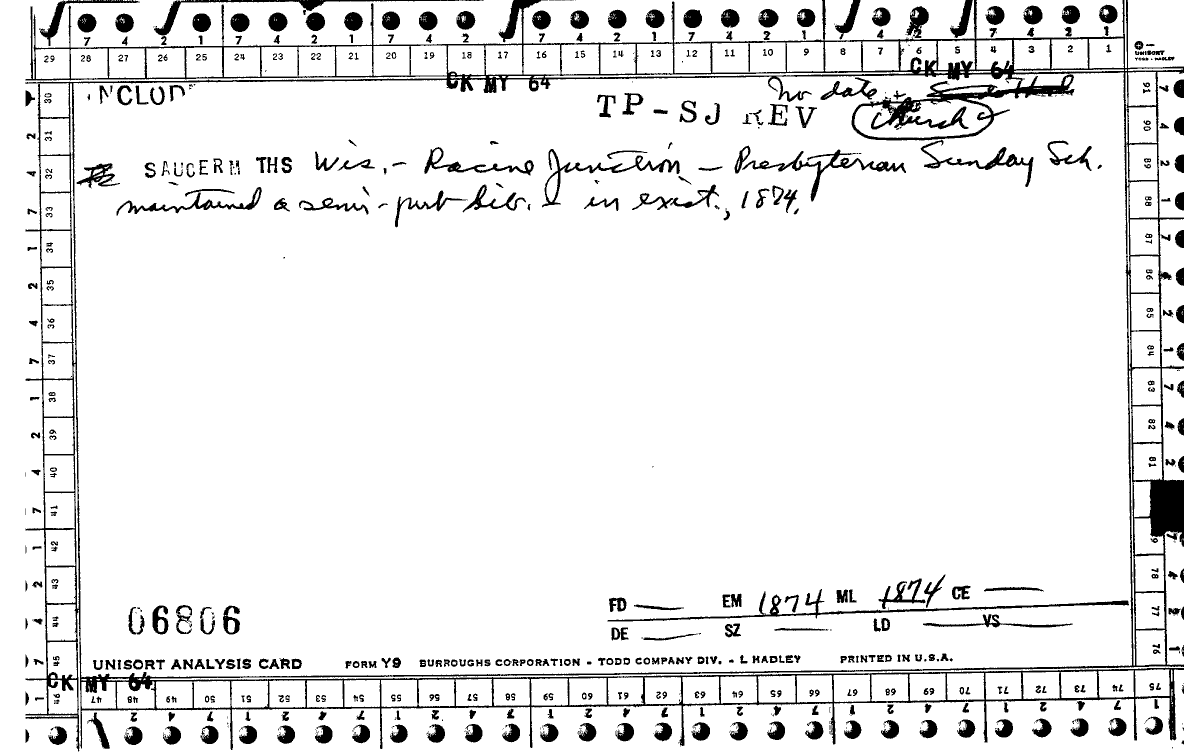 7 4 2 1 7 4 2 1 7 4 2 1 7 4 2 1 7 4 2 1 7 4 2 1
29 28 27 26 25 24 23 22 21 20 19 18 17 16 15 14 13 12 11 10 9 8 7 6 5 4 3 2 1
UNISORT
TODD - HADLEY
CK MY 64 CK MY 64
NCLUD no date
TP-SJ REV Church
SAUCERM THS Wis. - Racine Junction - Presbyterian Sunday Sch.
maintained a semi-pub lib. in exist., 1874.
30 31 32 33 34 35 36 37 38 39 40 41 42 43 44 45 46
91 90 89 88 87 86 85 84 83 82 81 79 78 77 76 75
06806
FD — EM 1874 ML 1874 CE —
DE — SZ — LD — VS —
UNISORT ANALYSIS CARD FORM Y9 BURROUGHS CORPORATION - TODD COMPANY DIV. - L HADLEY PRINTED IN U.S.A.
CK MY 64
47 48 49 50 51 52 53 54 55 56 57 58 59 60 61 62 63 64 65 66 67 68 69 70 71 72 73 74